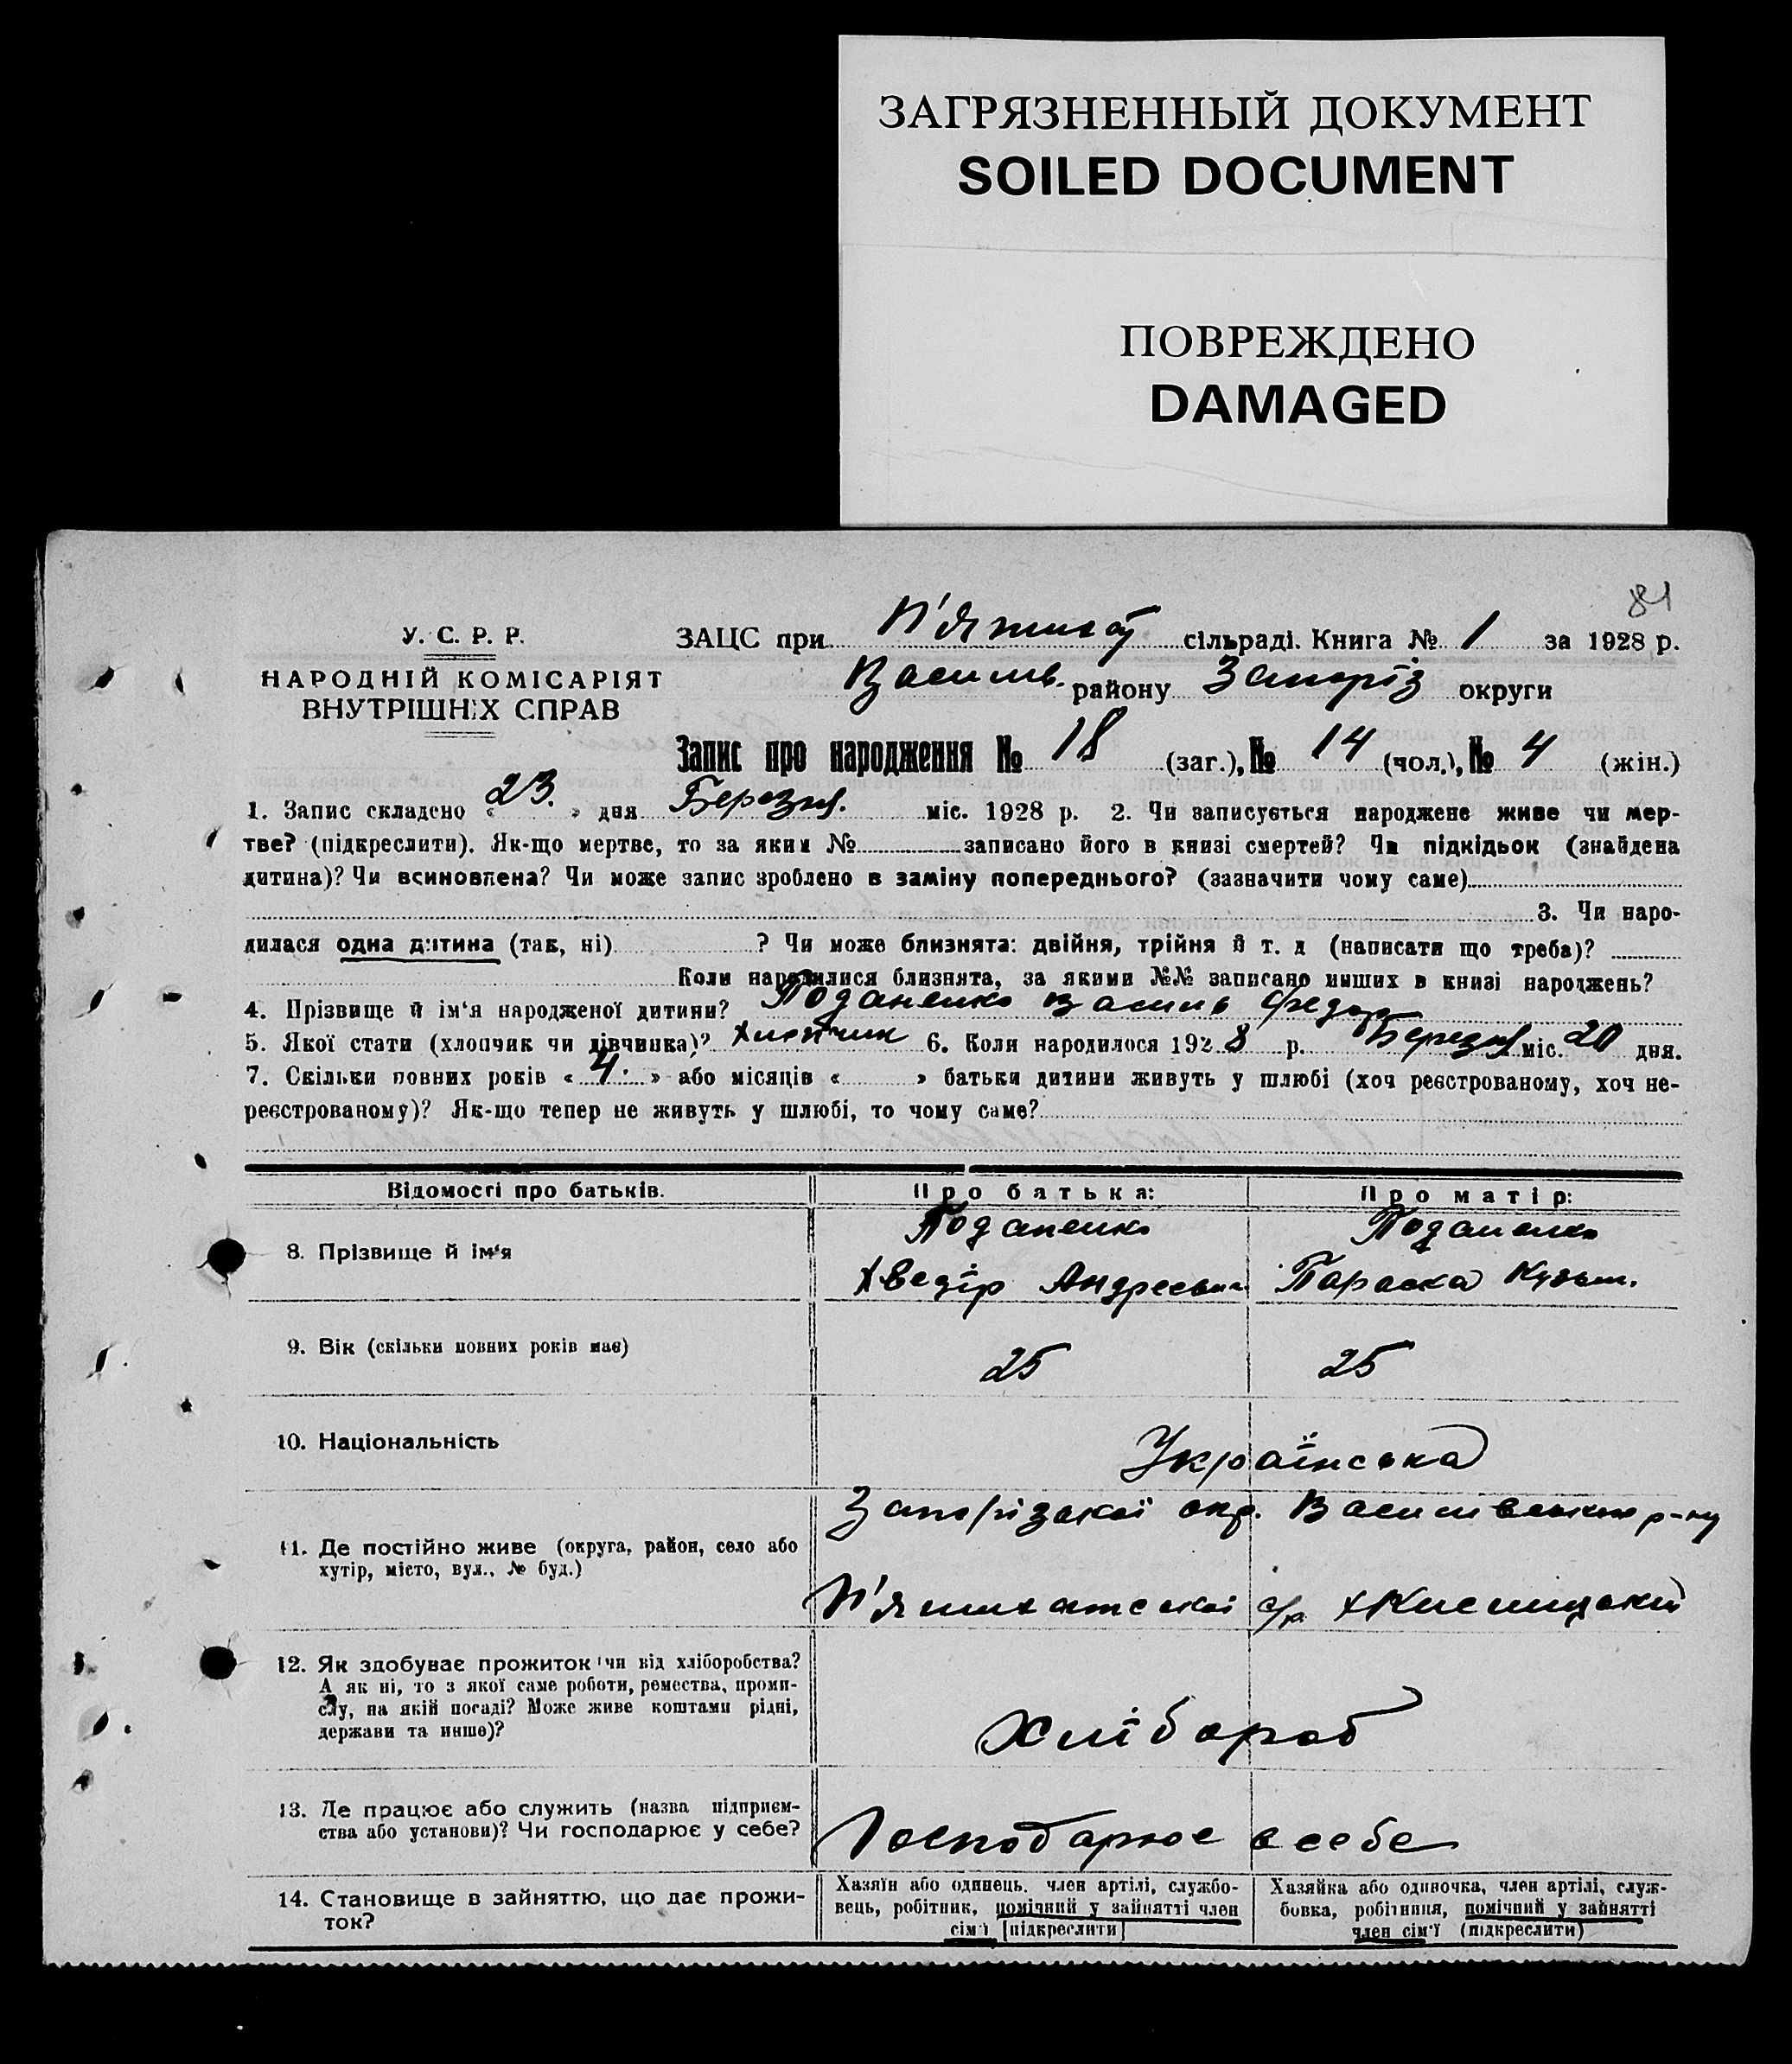 ЗАГРЯЗНЕННЫЙ ДОКУМЕНТ
SOILED DOCUMENT
ПОВРЕЖДЕНО
DAMAGED
81
У. С. Р. Р.
НАРОДНІЙ КОМІСАРІЯТ
ВНУТРІШНІХ СПРАВ
ЗАЦС при П'ятихат сільраді. Книга № 1 за 1928 р.
Василів. району Запоріз округи
Запис про народження № 18 (заг.), № 14 (чол.), № 4 (жін.)
1. Запис складено « 23. » дня Березня. міс. 1928 р. 2. Чи записується народжене живе чи мер-
тве? (підкреслити). Як-що мертве, то за яким № записано його в книзі смертей? Чи підкідьок (знайдена
дитина)? Чи всиновлена? Чи може запис зроблено в заміну попереднього? (зазначити чому саме)
3. Чи наро-
дилася одна дитина (так, ні) ? Чи може близнята: двійня, трійня й т. д (написати що треба)?
Коли народилися близнята, за якими №№ записано инших в книзі народжень?
4. Прізвище й ім'я народженої дитини? Поданенко Василь Федор
5. Якої стати (хлопчик чи дівчинка)? Хлопчик 6. Коли народилося 1928 р. Березня міс. 20 дня.
7. Скільки повних років « 4. » або місяців « » батьки дитини живуть у шлюбі (хоч реєстрованому, хоч не-
реєстрованому)? Як-що тепер не живуть у шлюбі, то чому саме?
Відомості про батьків. Про батька: Про матір:
8. Прізвище й ім'я
Поданенко Поданенко
Хведір Андреевич Параска Кузьм.
9. Вік (скільки повних років має) 25 25
10. Національність Українська
11. Де постійно живе (округа, район, село або
хутір, місто, вул., № буд.)
Запорізької окр. Василівського р-ну
П'ятихатської с/р
12. Як здобуває прожиток чи від хліборобства?
А як ні, то з якої саме роботи, ремества, проми-
слу, на якій посаді? Може живе коштами рідні,
держави та инше)?
Хлібороб
13. Де працює або служить (назва підприєм-
ства або установи)? Чи господарює у себе?
Господарює в себе
14. Становище в зайняттю, що дає прожи-
ток?
Хазяїн або одинець, член артілі, службо-
вець, робітник, помічний у зайнятті член
сім'ї [підкреслити]
Хазяйка або одиночка, член артілі, служ-
бовка, робітниця, помічний у зайнятті
член сім'ї (підкреслити)